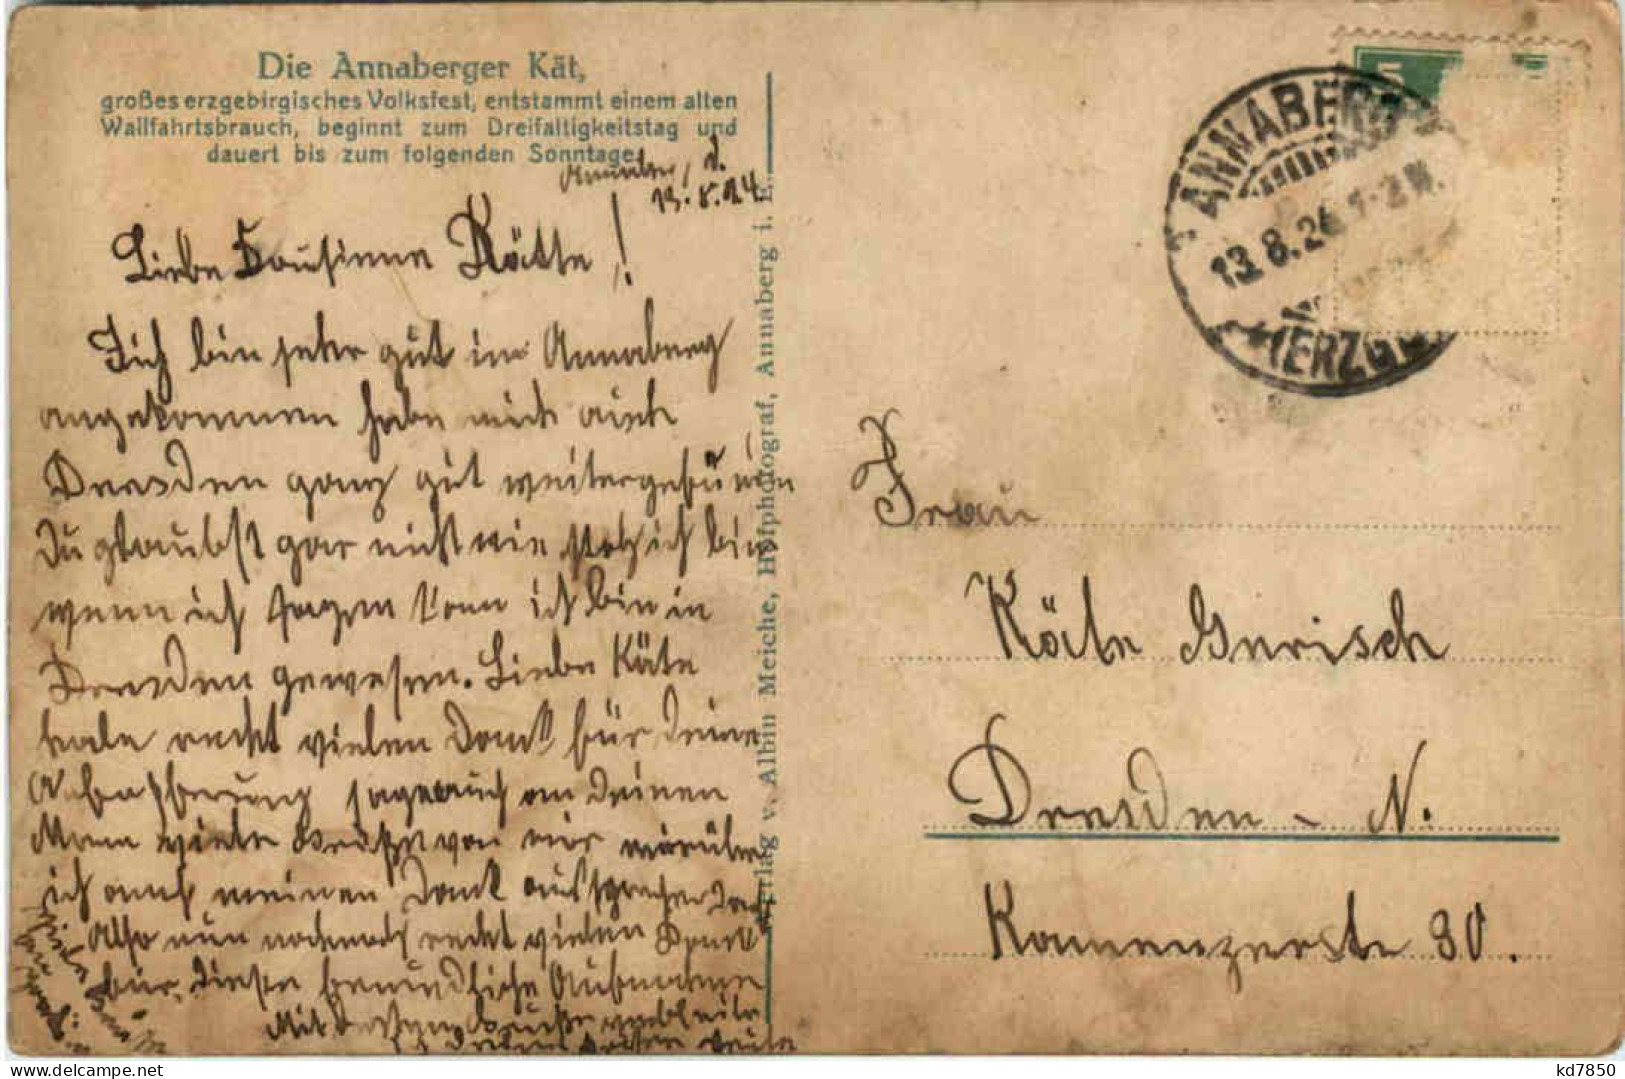 Die Annaberger Kät,
großes erzgebirgisches Volksfest, entstammt einem alten
Wallfahrtsbrauch, beginnt zum Dreifaltigkeitstag und
dauert bis zum folgenden Sonntage.
13.8.24
Liebe Cousinne Kätte!
Ich bin sehr gut in Annaberg
angekommen habe mich auch
Dresden ganz gut
Du glaubst gar nicht wie stolz ich bin
wenn ich sagen kann ich bin in
Dresden gewesen. Liebe Käte
habe recht vielen Dank für deine
sage auch an deinen
Mann viele Grüße von mir
ich auch meinen Dank aussprechen
Also nun nochmals recht vielen Dank
für diese freundliche Aufnahme
Mit besten Grüßen verbleibe
Verlag v. Albin Meiche, Hofphotograf, Annaberg i. E.
ANNABERG
13.8.24 1-2 N.
(ERZG
5
Frau
Käte Gerisch
Dresden - N.
Kamenzerstr 30.
kd7850